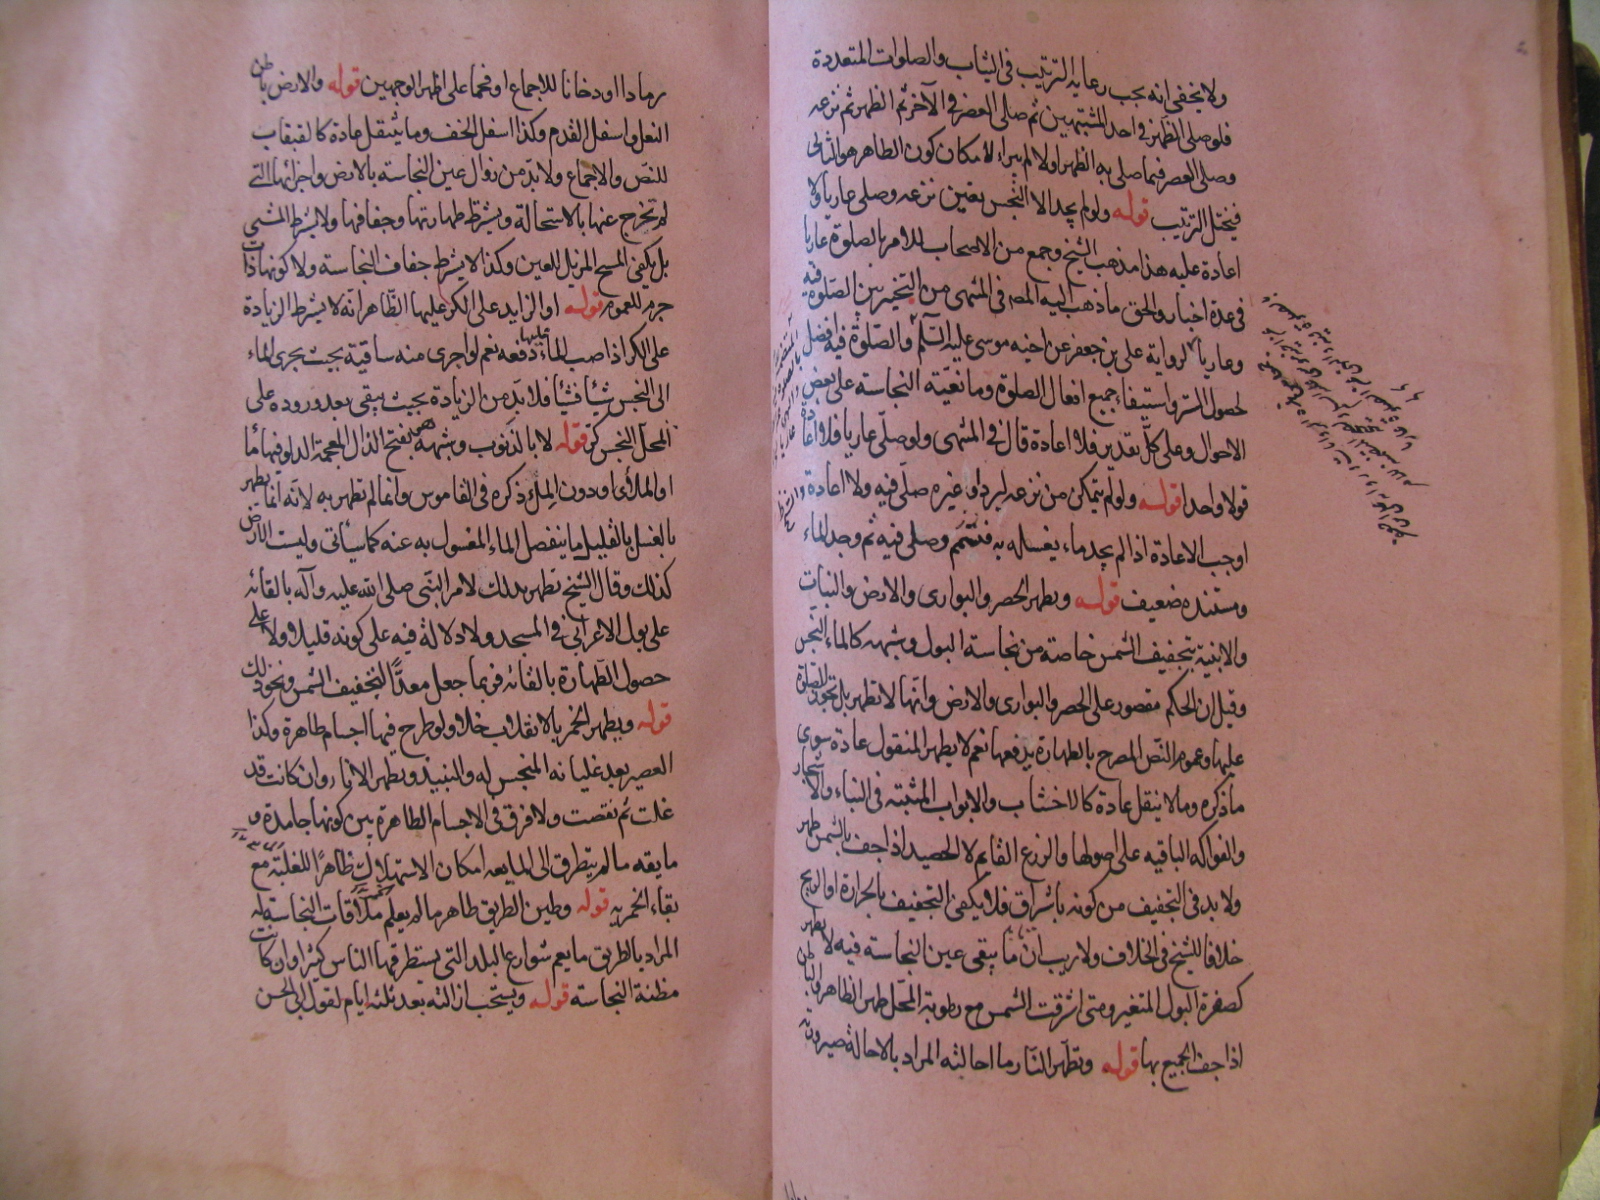 ولا يخفى انه يجب رعاية الترتيب فى الثياب والصلوات المتعددة
فلو صلى الظهر فى احد المشتبهين ثم صلى العصر فى الآخر ثم الظهر ثم نزعه
وصلى العصر فيما صلى به الظهر اولا لم يبراء لامكان كون الطاهر هو الثانى
فيختل الترتيب قوله ولو لم يجد الا النجس بيقين نزعه وصلى عاريا ولا
اعادة عليه هذا مذهب الشيخ وجمع من الاصحاب للامر بالصلوة عاريا
فى عدة اخبار والحق ما ذهب اليه المص فى المنتهى من التخيير بين الصلوة فيه
وعاريا لرواية على بن جعفر عن اخيه موسى عليه السلم والصلوة فيه افضل
لحصول الستر واستيفاء جميع افعال الصلوة ومانعية النجاسة على بعض
الاحوال وعلى كل تقدير فلا اعادة قال فى المنتهى ولو صلى عاريا فلا اعادة
قولا واحدا قوله ولو لم يتمكن من نزعه لبرد او غيره صلى فيه ولا اعادة
اوجب الاعادة اذا لم يجد ماء يغسله به فتيمم وصلى فيه ثم وجد الماء
ومستنده ضعيف قوله ويطهر الحصر والبوارى والارض والنبات
والابنية بتجفيف الشمس خاصة من نجاسة البول وشبهه كالماء النجس
وقيل ان الحكم مقصور على الحصر والبوارى والارض وانها لا تطهر بل تجوز الصلوة
عليها وعموم النص المصرح بالطهارة يدفعها نعم لا يطهر المنقول عادة سوى
ما ذكره وما لا ينقل عادة كالاخشاب والابواب المثبته فى البناء والاشجار
والفواكه الباقيه على اصولها والزرع القايم لا الحصيد اذا جف بالشمس طهر
ولا بد فى التجفيف من كونه باشراق فلا يكفى التجفيف بالحرارة او الريح
خلافا للشيخ فى الخلاف ولا ريب ان ما يبقى عين النجاسة فيه لا يطهر
كصفرة البول المتغير ومتى اشرقت الشمس مع رطوبة المحل طهر الظاهر والباطن
اذا جف الجميع بها قوله وتطهر النار ما احالته المراد بالاحالة صيرورته
رمادا او دخانا للاجماع او فحما على اظهر الوجهين قوله والارض باطن
النعل واسفل القدم وكذا اسفل الخف وما ينتقل عادة كالقبقاب
للنص والاجماع ولا بد من زوال عين النجاسة بالارض واجزائها التى
لم تخرج عنها بالاستحالة ويشترط طهارتها وجفافها ولا يشترط المشى
بل يكفى المسح المزيل للعين وكذا لا يشترط جفاف النجاسة ولا كونها ذات
جرم للعموم قوله او الزايد على الكر عليها الظاهر انه لا يشترط الزيادة
على الكر اذا صب الماء عليها دفعه نعم لو اجرى منه ساقية بحيث يجرى الماء
الى النجس شيئا فشيئا فلا بد من الزيادة بحيث يبقى بعد وروده على
المحل النجس كر قوله لا بالذنوب وشبهه هى بفتح الذال المعجمة الدلو فيها ما
او الملأى او دون الملئ ذكره فى القاموس وانما لم تطهر به لانه انما يطهر
بالغسل بالقليل ما ينفصل الماء المغسول به عنه كما سيأتى وليست الارض
كذلك وقال الشيخ تطهر بذلك لامر النبى صلى الله عليه وآله بالقائه
على بول الاعرابى فى المسجد ولا دلالة فيه على كونه قليلا ولا على
حصول الطهارة بالقائه فربما جعل معدّاً لتجفيف الشمس ونحو ذلك
قوله ويطهر الخمر بالانقلاب خلا ولو طرح فيها اجسام طاهرة وكذا
العصير بعد غليانه المنجس له والنبيذ ويطهر الاناء وان كانت قد
غلت ثم نقصت ولا فرق فى الاجسام الطاهرة بين كونها جامدة و
مايعه ما لم يتطرق الى المايعه امكان الاستهلاك ظاهرا للغلبة مع
بقاء الخمريه قوله وطين الطريق طاهر ما لم يعلم ملاقات النجاسة له
المراد بالطريق ما يعم شوارع البلد التى يستطرقها الناس كثيرا وان كانت
مظنة النجاسة قوله ويستحب ازالته بعد ثلثه ايام لقول ابى الحسن